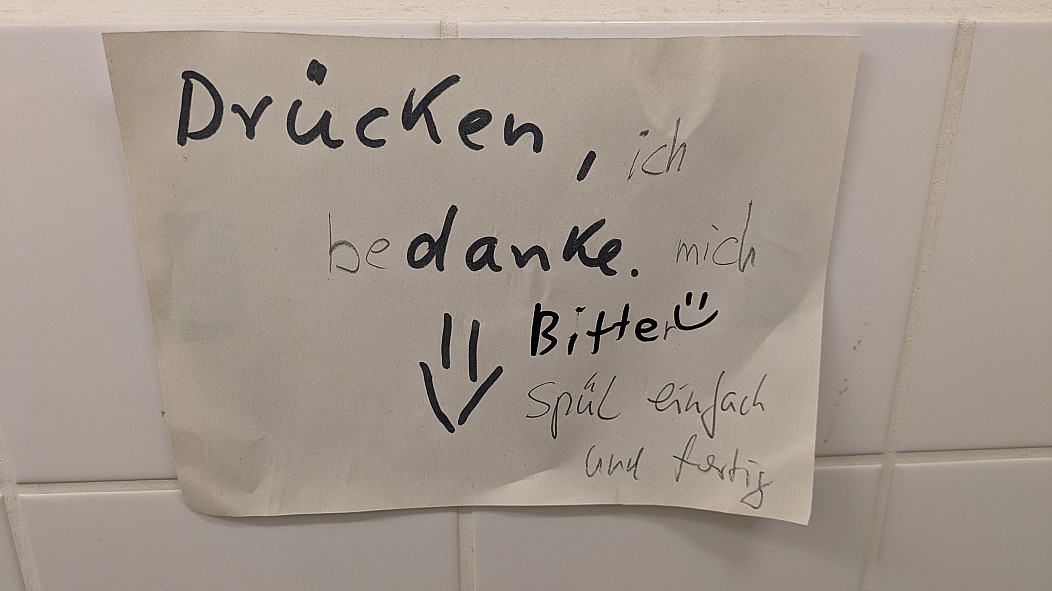 Drücken, ich
bedanke. mich
Bitter
Spül einfach
und fertig